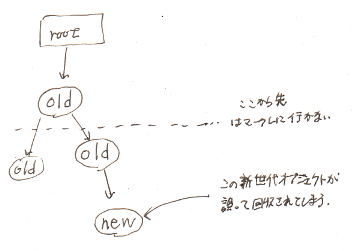 root
old
ここから先
はマークしに行かない
old
old
この新世代オブジェクトが
誤って回収されてしまう.
new